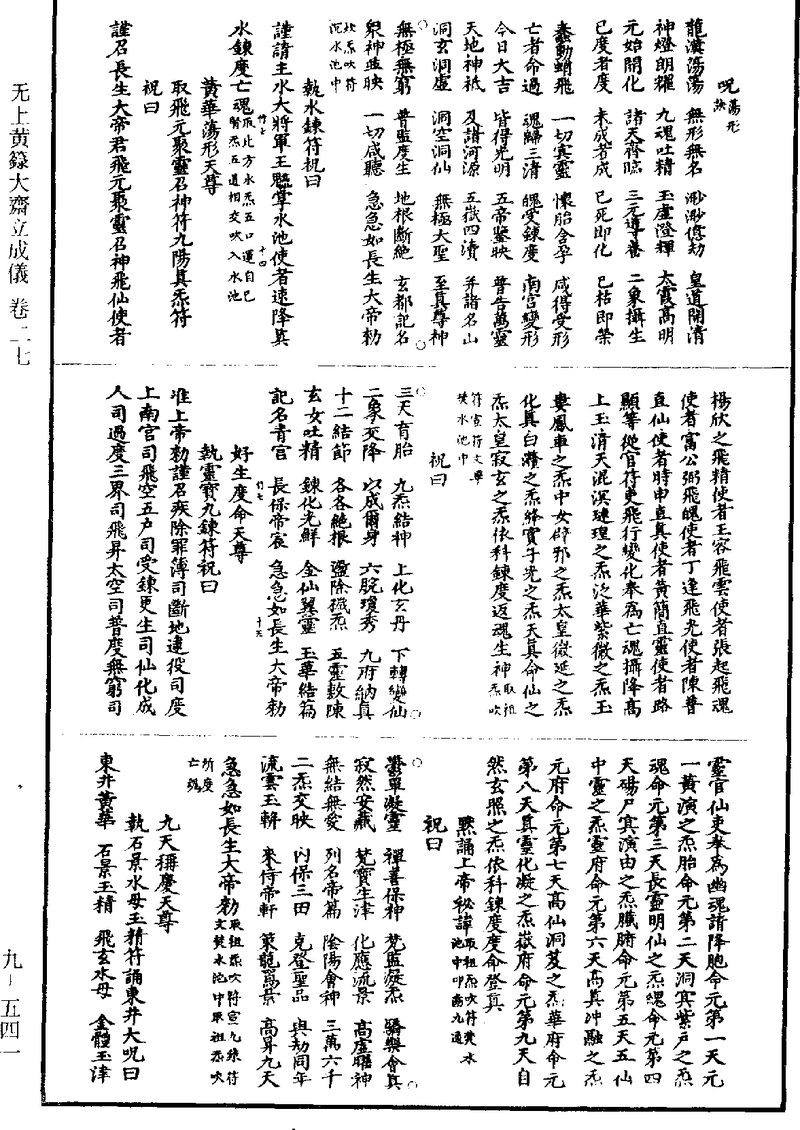 无上黄籙大齋立成儀 卷二七
九-五四一
呪蕩形訣
龍漢蕩蕩 無形無名 渺渺億劫 皇道開清
神燈朗耀 九魂吐精 玉虛澄輝 太霞高明
元始開化 諸天齊臨 三元導養 二象攝生
已度者度 未成者成 已死即化 已枯即榮
蠢動蛸飛 一切冥靈 懷胎含孕 咸得受形
亡者命過 魂歸三清 魄受鍊度 南宮變形
今日大吉 皆得光明 五帝鑒映 普告萬靈
天地神祇 及諸河源 五嶽四瀆 并諸名山
洞玄洞虛 洞空洞仙 無極大聖 至真尊神
無極無窮 普監度生 地根斷絶 玄都記名
衆神監映 一切咸聽 急急如長生大帝勑
次炁吹符沉水池中
執水鍊符祝曰
謹請主水大將軍王監掌水池使者速降真
水鍊度亡魂取北方水炁五口運自己腎炁五道相交吹入水池
黃華蕩形天尊
取飛元聚靈召神符九陽真炁符
祝曰
謹召長生大帝君飛元聚靈召神飛仙使者
楊欣之飛精使者王容飛雲使者張起飛魂
使者富公弼飛魄使者丁逢飛光使者陳普
直仙使者時申直真使者黃簡直靈使者路
顯等從官符吏飛行變化奉爲亡魂攝降高
上玉清天混溟璉理之炁泛華紫微之炁玉
婁鳳車之炁中女辟邪之炁太皇微延之炁
化真白瀵之炁絳實午光之炁天真命仙之
炁太皇寂玄之炁依科鍊度返魂生神取祖炁吹
符宣符文畢焚水池中
祝曰
三天育胎 九炁結神 上化玄丹 下轉變仙
二象交降 以成爾身 六脘瓊秀 九府納真
十二結節 各各絶根 盪除穢炁 五靈敷陳
玄女吐精 鍊化光鮮 金仙翼靈 玉華結篇
記名青宮 長保帝宸 急急如長生大帝勑
好生度命天尊
執靈寶九鍊符祝曰
准上帝勑謹召疾除罪薄司斷地逮役司度
上南宮司飛空五戶司受鍊更生司仙化成
人司過度三界司飛昇太空司普度無窮司
靈官仙吏奉爲幽魂請降胞命元第一天元
一黃演之炁胎命元第二天洞冥紫戶之炁
魂命元第三天長靈明仙之炁魄命元第四
天碭尸冥演由之炁臟腑命元第五天五仙
中靈之炁靈府命元第六天高真沖融之炁
元府命元第七天高仙洞芨之炁華府命元
第八天真靈化凝之炁嶽府命元第九天自
然玄照之炁依科鍊度度命登真
默誦上帝祕諱取祖炁吹符焚水池中叩齒九通
祝曰
鬱單凝靈 禪善保神 梵監凝炁 驕樂會真
寂然安藏 梵寶生津 化應流景 高虛驅神
無結無愛 列名帝篇 陰陽會神 三萬六千
二炁交映 内保三田 克登聖品 與劫同年
流雲玉軿 來侍帝軒 策龍駕景 高昇九天
急急如長生大帝勑取祖炁吹符宣九鍊符文焚水池中取祖炁吹
所度亡魂
九天稱慶天尊
執石景水母玉精符誦東井大呪曰
東井黃華 石景玉精 飛玄水母 金體玉津